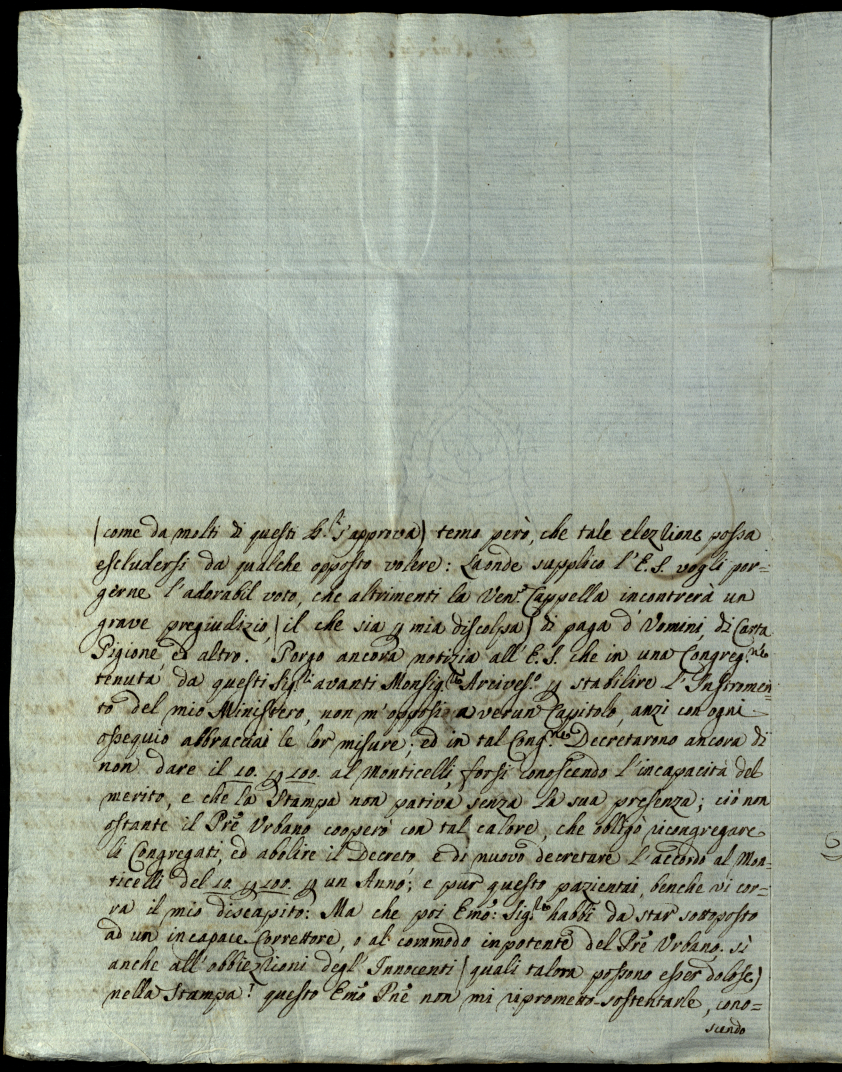 (come da molti di questi S.ri s'approva) temo però, che tale elezzione possa
escludersi da qualche opposto volere: Laonde supplico l'E.S. vogli por=
gerne l'adorabil voto, che altrimenti la Ven.e Cappella incontrerà un
grave pregiudizio (il che sia p mia discolpa) di paga d'Uomini, di Carta
Pigione, ed altro. Porgo ancora notizia all'E.S. che in una Congreg.ne
tenuta da questi Sig.ri avanti Monsig.re Arcives.o p stabilire l'Instromen=
to del mio Ministero, non m'opposi a verun Capitolo, anzi con ogni
ossequio abbracciai le lor misure; ed in tal Cong.ne Decretarono ancora di
non dare il 10. p 100. al Monticelli, forsi conoscendo l'incapacità del
merito, e che la Stampa non pativa senza la sua presenza; ciò non
ostante il Prē Urbano cooperò con tal calore, che obligò ricongregare
li Congregati, ed abolire il Decreto. E di nuovo decretare l'accordo al Mon=
ticelli del 10. p 100. p un Anno; e pur questo pazientai, benche vi cor=
ra il mio discapito: Ma che poi Emō: Sig.re habbi da star sottoposto
ad un incapace Correttore, o al commodo inpotente del Prē Urbano, sì
anche all'obbiezzioni degl'Innocenti (quali talora possono esser dolose)
nella Stampa? questo Emō Pnē non mi riprometto sostentarle, cono=
scendo